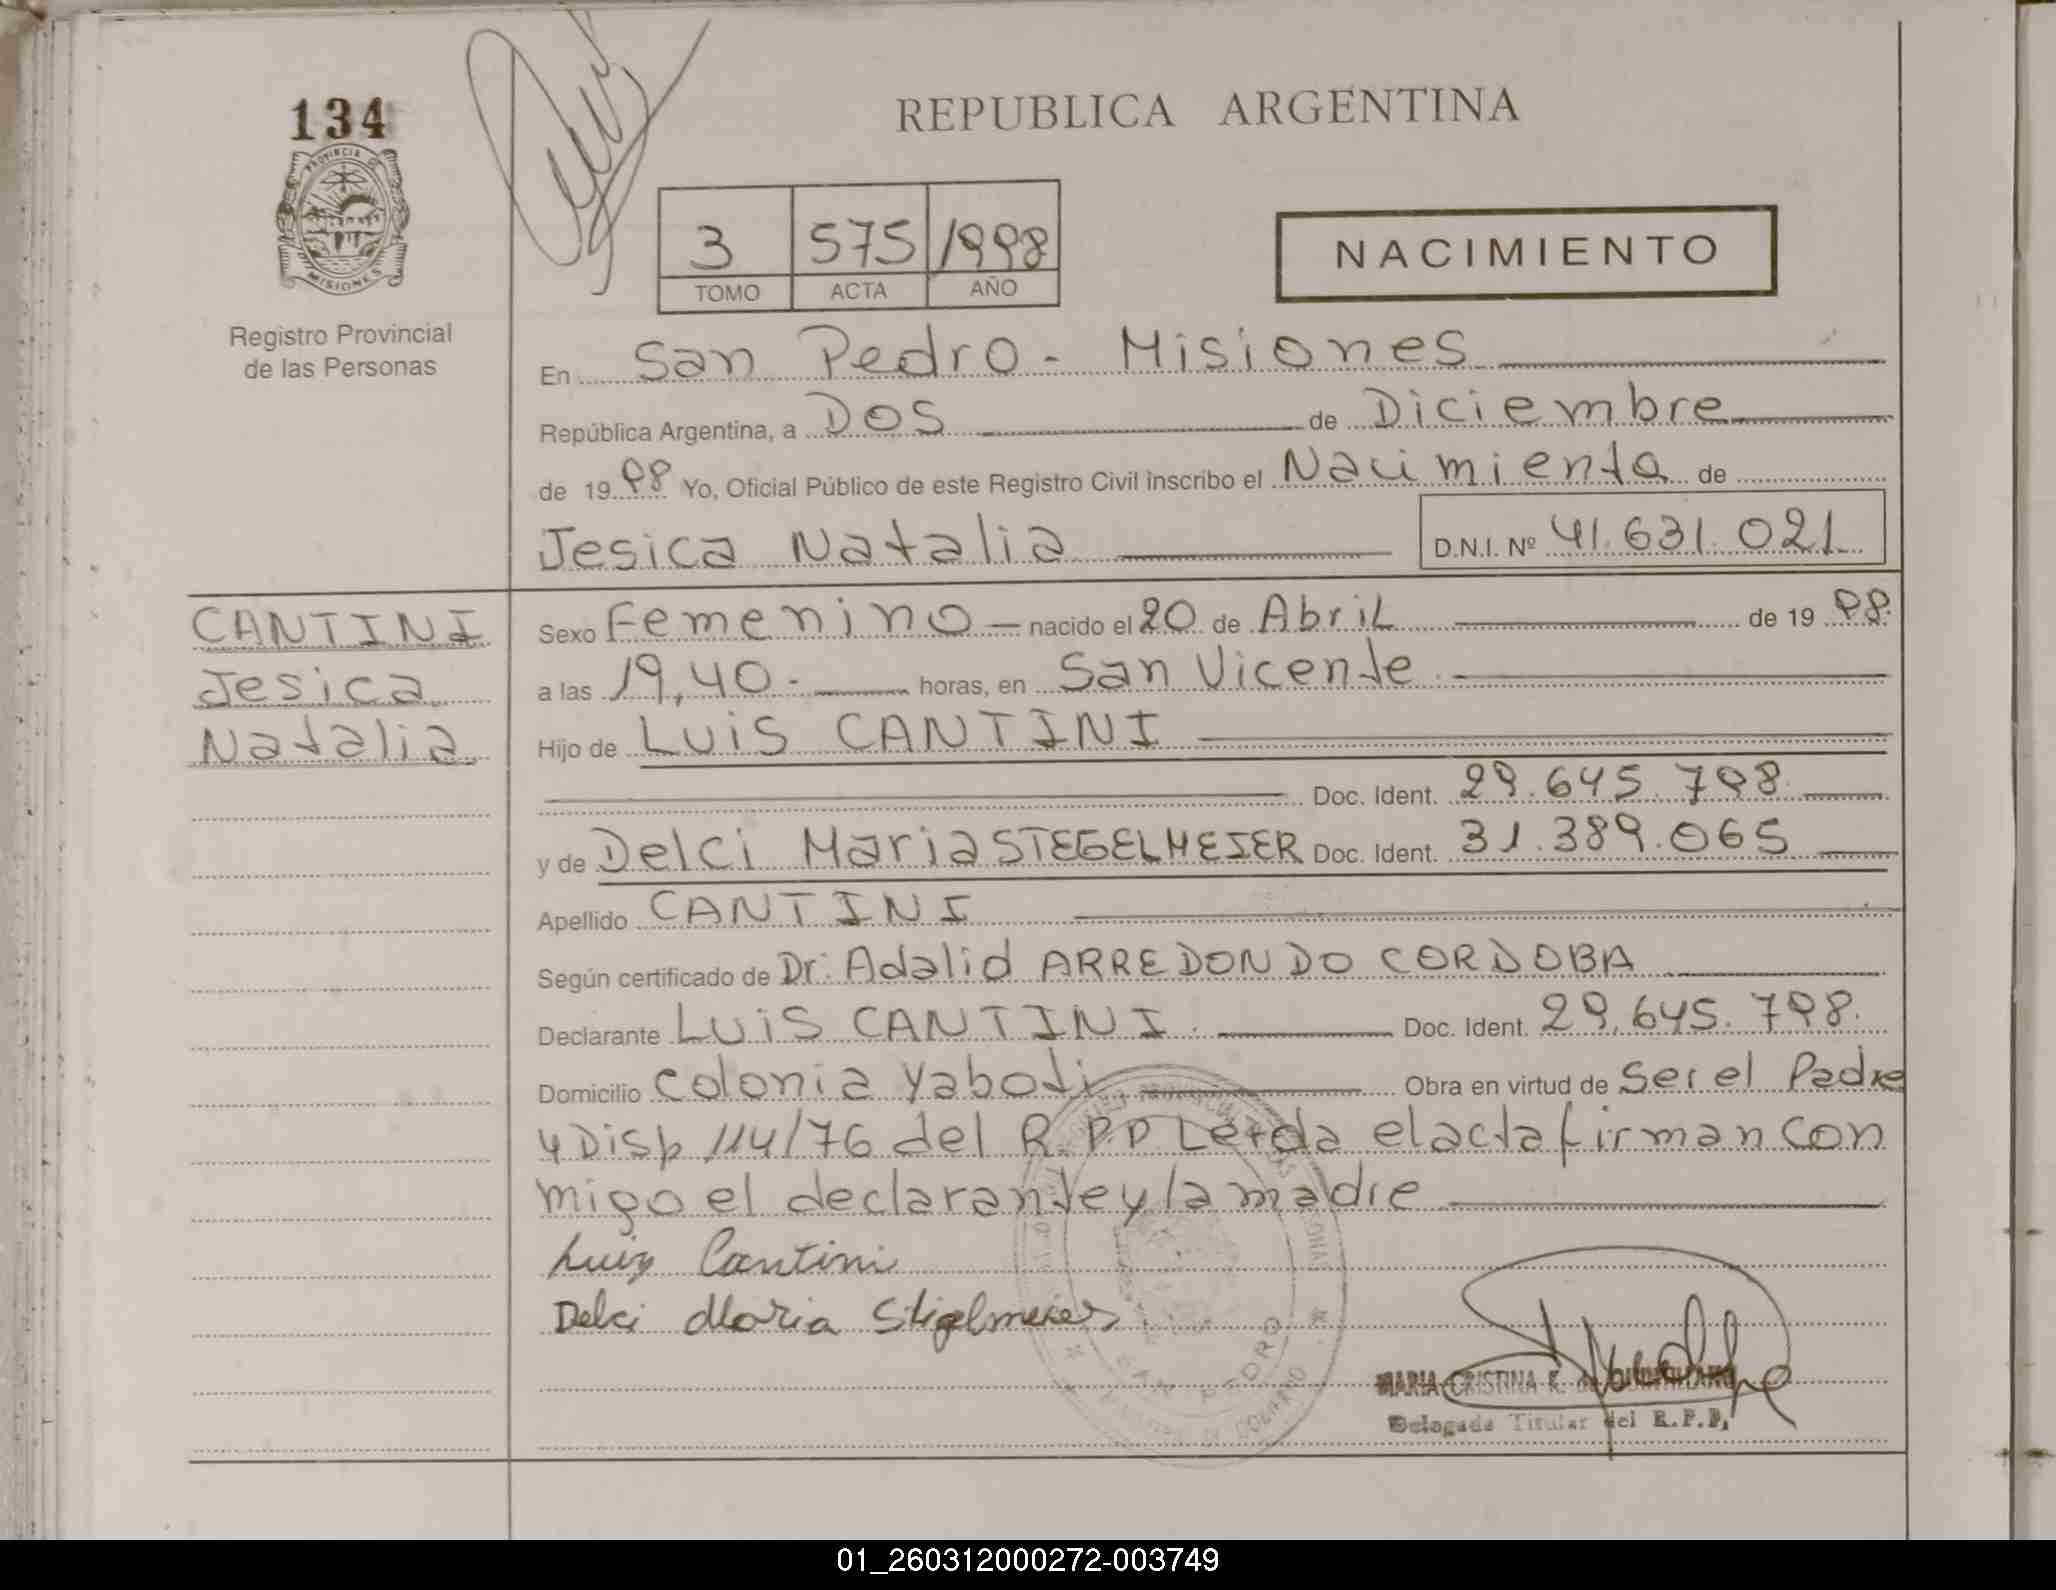 134
REPUBLICA ARGENTINA
PROVINCIA DE
MISIONES
3 575 1998
TOMO ACTA AÑO
NACIMIENTO
Registro Provincial
de las Personas
En San Pedro - Misiones
República Argentina, a DOS de Diciembre
de 1998 Yo, Oficial Público de este Registro Civil inscribo el Nacimiento de
Jesica Natalia D.N.I. Nº 41.631.021
CANTINI
Jesica
Natalia
Sexo Femenino nacido el 20 de Abril de 1998.
a las 19,40. horas, en San Vicente
Hijo de Luis CANTINI
Doc. Ident. 29.645.798
y de Delci Maria STEGELMEIER Doc. Ident. 31.389.065
Apellido CANTINI
Según certificado de Dr. Adalid ARREDONDO CORDOBA
Declarante Luis CANTINI. Doc. Ident. 29.645.798.
Domicilio Colonia Yaboti Obra en virtud de Ser el Padre
y Disp 114/76 del R.P.P Leida el acta firman con
migo el declarante y la madre
Luis Cantini
Delci Maria Stigelmeier
SAN PEDRO
MARIA CRISTINA R. DE
Delegada Titular del R.P.P.
01_260312000272-003749